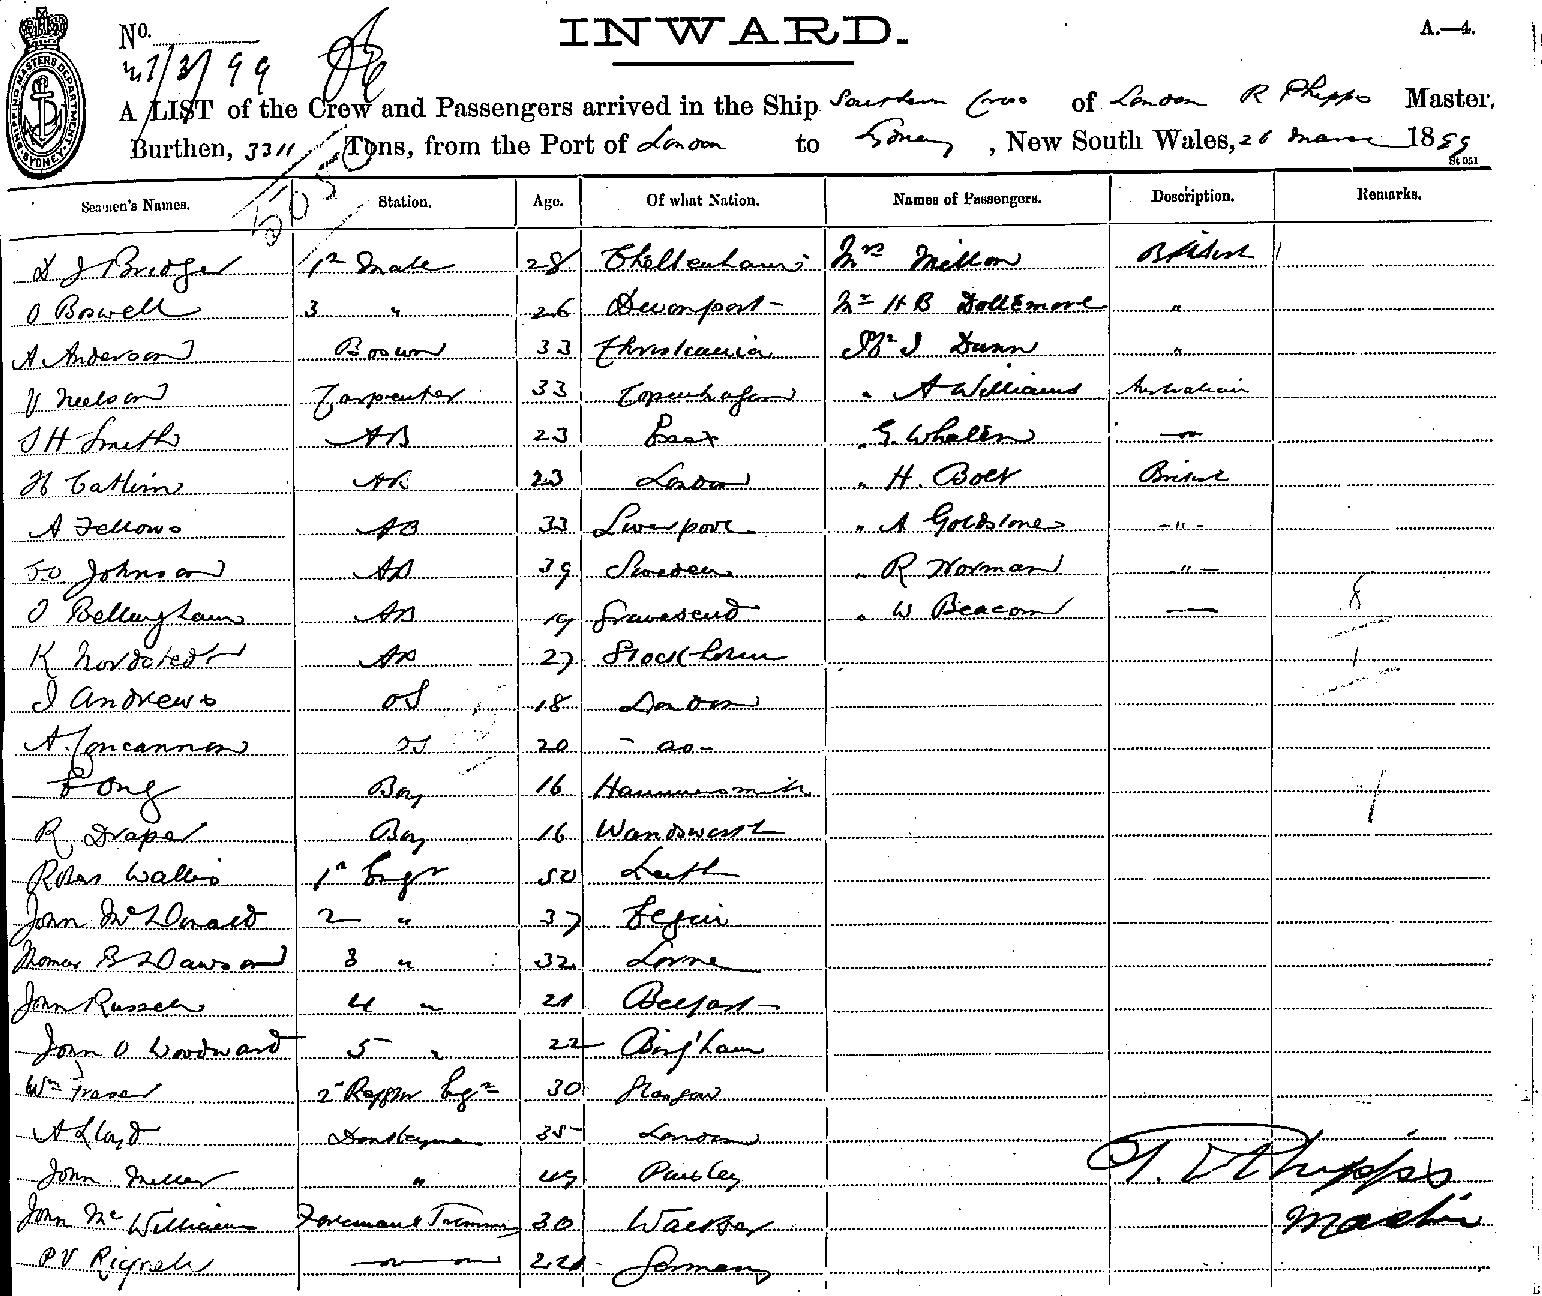 INWARD.
A.—4.
No.
27/3/99
A LIST of the Crew and Passengers arrived in the Ship Southern Cross of London R Phipps Master,
Burthen, 3311 Tons, from the Port of London to Sydney, New South Wales, 26 March 1899
St 051
5050
Seamen's Names. Station. Age. Of what Nation. Names of Passengers. Description. Remarks.
D J Bridger 1st Mate 28 Cheltenham Mrs Millon British
O Boswell 3 " 26 Devonport Mr H B Dollemore "
A Anderson Bosun 33 Christiania Mr J Dunn "
V Neelson Carpenter 33 Copenhagen " A Williams Australian
J H Smith AB 23 Essex " G. Whalen
H Catlin AB 23 London " H. Bolt British
A Fellows AB 33 Liverpool " A Goldstone -"-
Johnson AB 39 Sweden " R Norman -"-
O Bellingham AB 19 Gravesend " W Beacom 8
K Nordstedt AB 27 Stockholm 1
J Andrews OS 18 London
A. Concannon OS 20 - do -
Long Boy 16 Hammersmith
R Draper Boy 16 Wandsworth
Robt Wallis 1st Engr 50 Leith
John McDonald 2 " 37
Thomas Dawson 3 " 32 Lorne
John Russell 4 " 21 Belfast
John O Woodward 5 " 22 Bingham
Wm Fraser 2nd Engr 30 Glasgow
A Lloyd Donkeyman 35 London
John Miller " 49 Paisley
John McWilliams Fireman & Trimmer 30
P V Germany
Phipps
Master